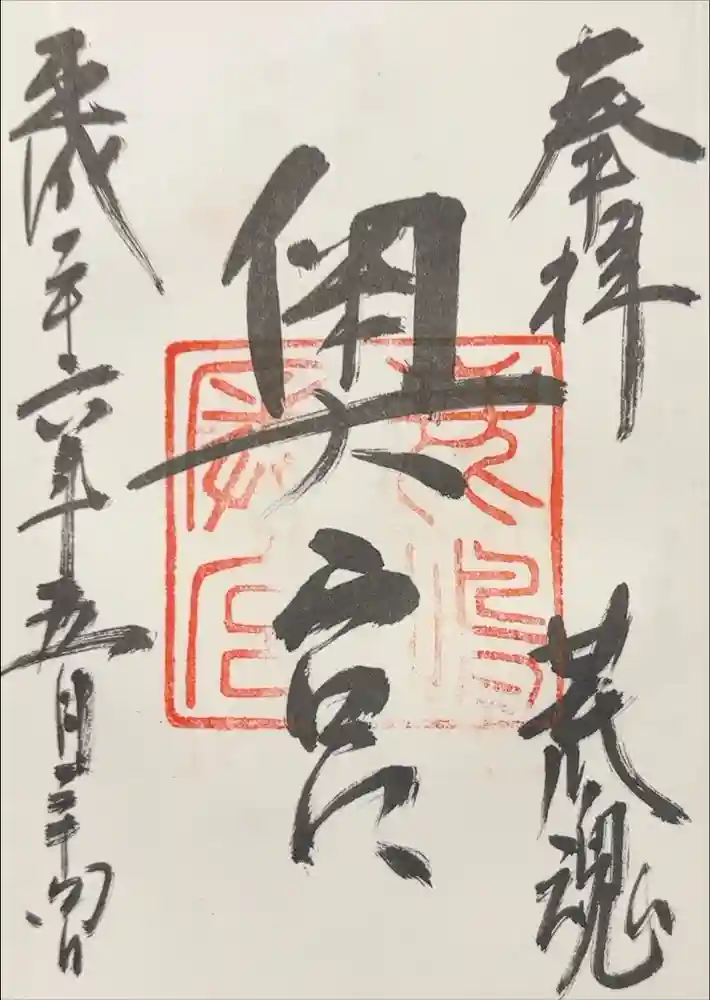 奉拝
荒魂
奥宮
平成二十六年五月二十四日